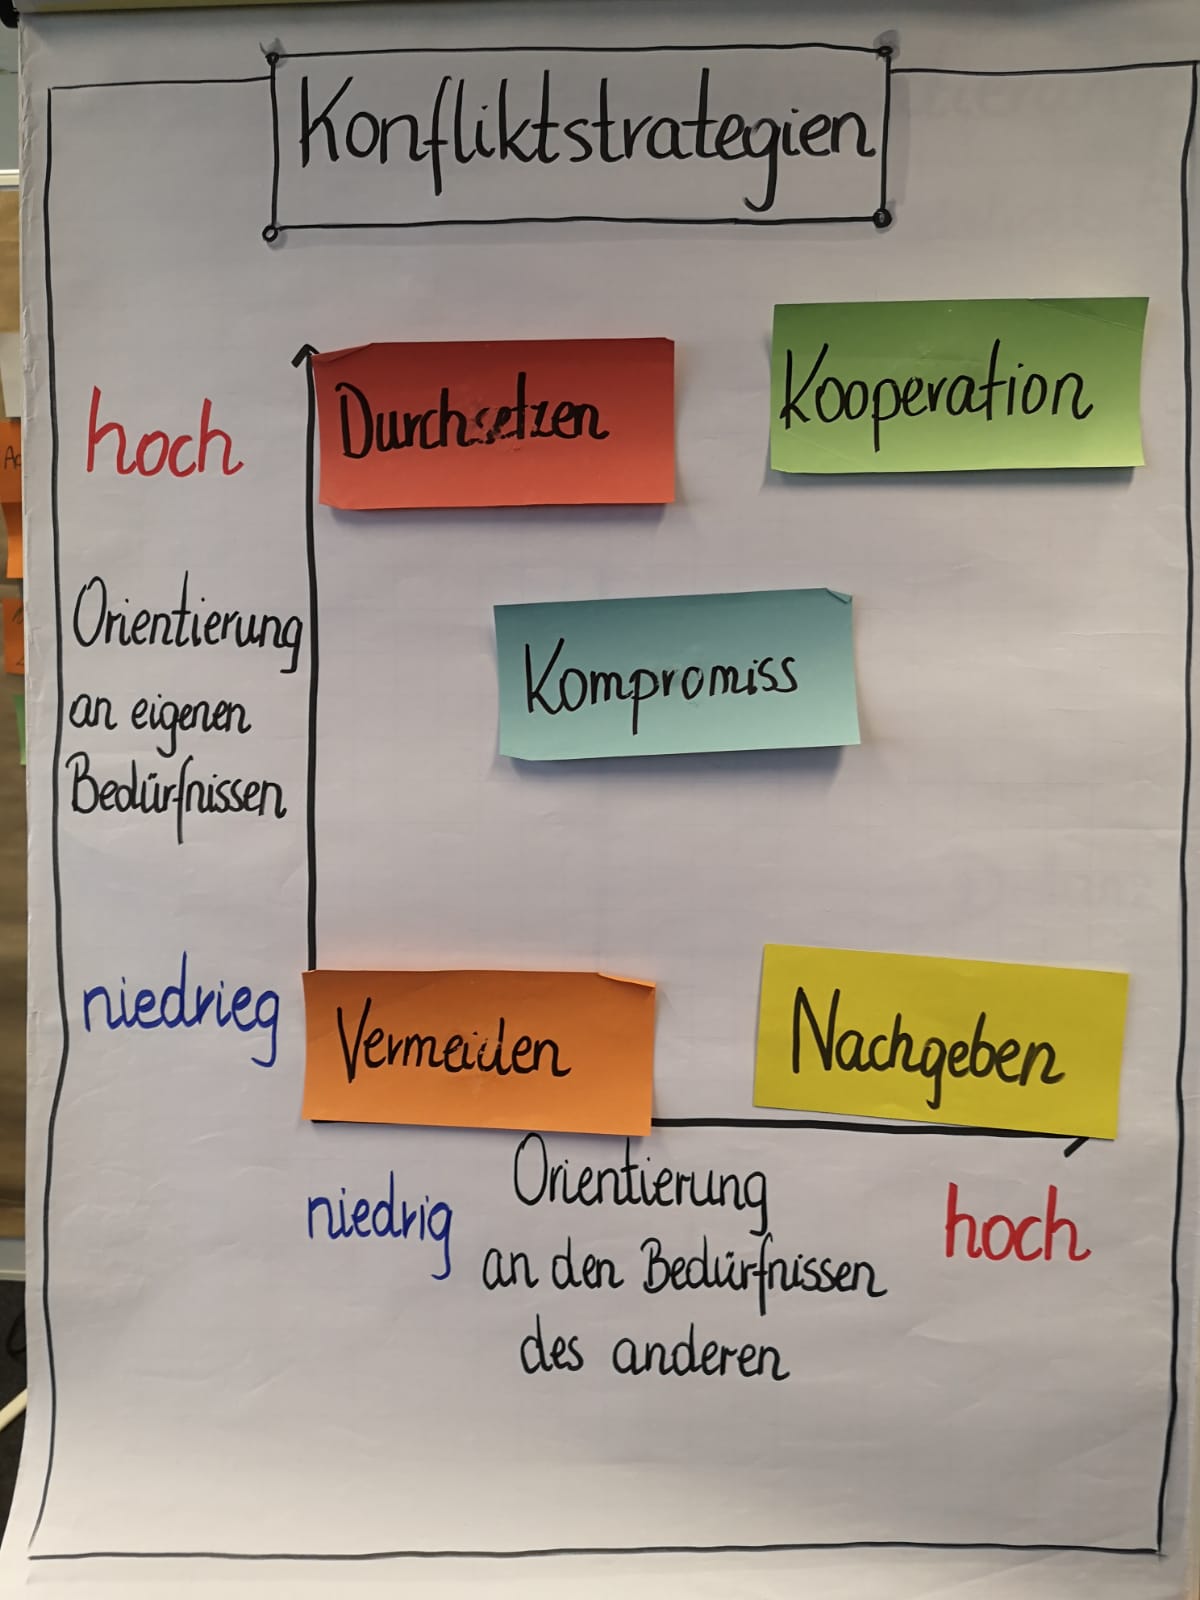 Konfliktstrategien
Durchsetzen
Kooperation
hoch
Orientierung
an eigenen
Bedürfnissen
Kompromiss
niedrieg
Vermeiden
Nachgeben
niedrig
Orientierung
an den Bedürfnissen
des anderen
hoch